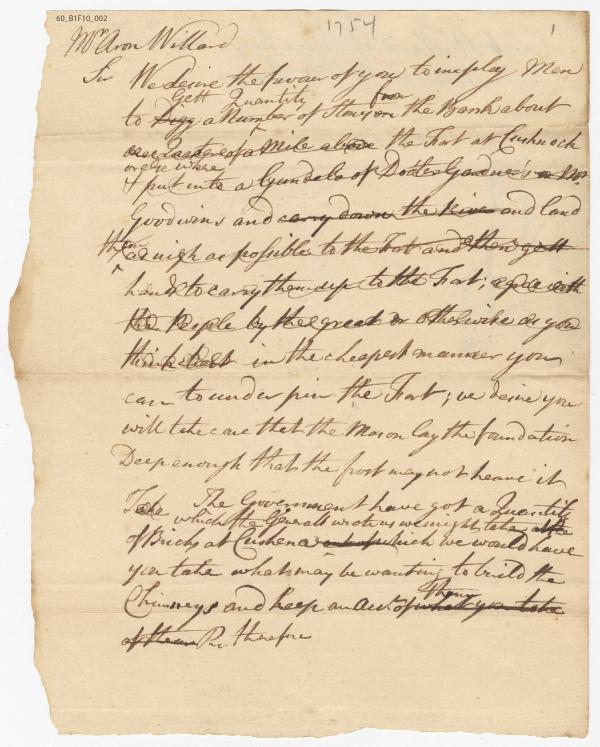 60_B1F10_002
1754
1
Mr. Aron Willard
Sir We desire the favour of you to imploy Men
Gett Quantity from
to Digg a Number of Stones on the Bank about
one Quarter of a Mile above the Fort at Cushnock
or else where
& put into a Gundelo of Docter Gardner's or Mr.
Goodwins and carry down the River and land
them
as nigh as possible to the Fort and then gett
hands to carry them up to the Fort; agree with
the People by the great or otherwise as you
think best in the cheapest manner you
can to under pin the Fort; we desire you
will take care that the Mason lay the foundation
Deep enough that the frost may not heave it
Take The Government have got a Quantity
which the Generall wrote us we might take
of Bricks at Cushena which we would have
you take what may be wanting to build the
them
Chimneys and keep an Acct. of what you take
of them Pr. therefore